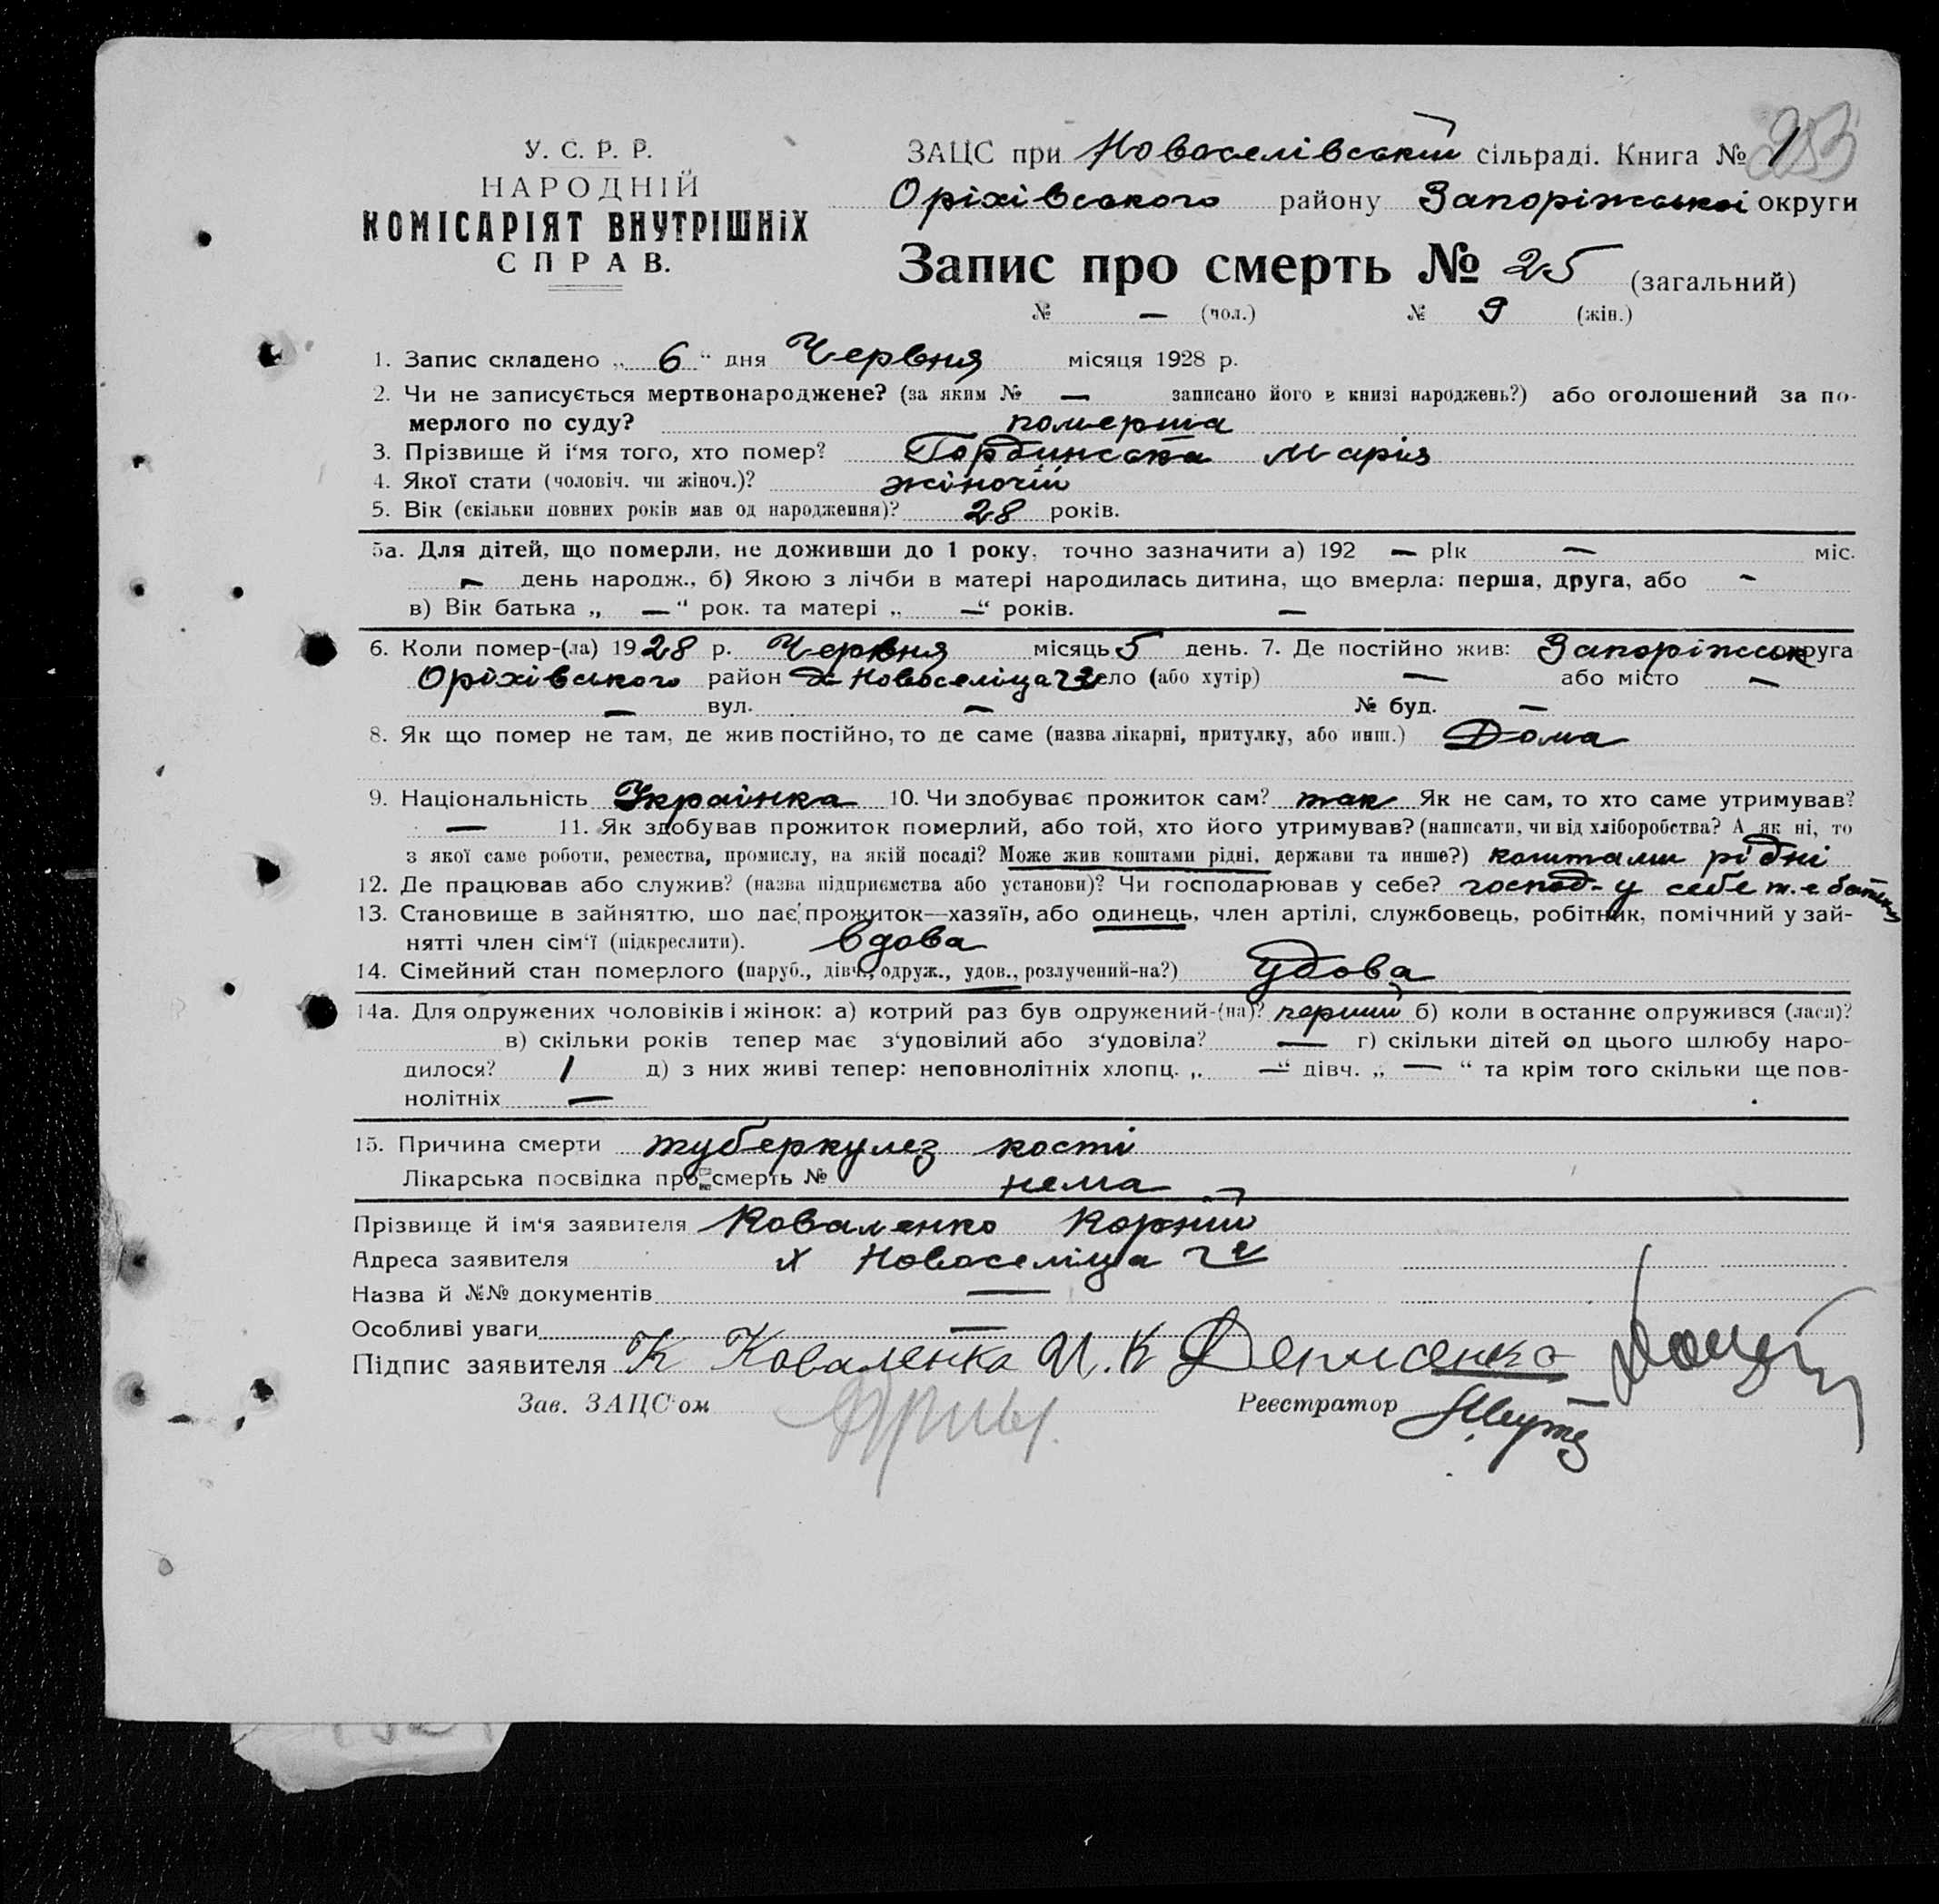 У. С. Р. Р.
НАРОДНІЙ
КОМІСАРІЯТ ВНУТРІШНІХ
СПРАВ.
253
ЗАЦС при Новоселівській сільраді. Книга № 1
Оріхівського району Запоріжської округи
Запис про смерть № 25 (загальний)
№ — (чол.) № 9 (жін.)
1. Запис складено „ 6 “ дня Червня місяця 1928 р.
2. Чи не записується мертвонароджене? (за яким № — записано його в книзі народжень?) або оголошений за по-
мерлого по суду? померша
3. Прізвище й і'мя того, хто помер? Гординська Марія
4. Якої стати (чоловіч. чи жіноч.)? жіночій
5. Вік (скільки повних років мав од народження)? 28 років.
5а. Для дітей, що померли, не доживши до 1 року, точно зазначити а) 192 — рік — міс.
— день народж., б) Якою з лічби в матері народилась дитина, що вмерла: перша, друга, або —
в) Вік батька „ — “ рок. та матері „ — “ років. —
6. Коли помер-(ла) 1928 р. Червня місяць 5 день. 7. Де постійно жив: Запоріжськ округа
Оріхівського район Новоселіца 2 село (або хутір) — або місто —
— вул. — № буд. —
8. Як що помер не там, де жив постійно, то де саме (назва лікарні, притулку, або инш.) Дома
9. Національність Українка 10. Чи здобуває прожиток сам? так Як не сам, то хто саме утримував?
— 11. Як здобував прожиток померлий, або той, хто його утримував? (написати, чи від хліборобства? А як ні, то
з якої саме роботи, ремества, промислу, на якій посаді? Може жив коштами рідні, держави та инше?) коштами рідні
12. Де працював або служив? (назва підприємства або установи)? Чи господарював у себе? господ- у себе т.е
13. Становище в зайняттю, що дає прожиток—хазяїн, або одинець, член артілі, службовець, робітник, помічний у зай-
нятті член сім'ї (підкреслити). вдова
14. Сімейний стан померлого (паруб., дівч., одруж., удов., розлучений-на?) Удова
14а. Для одружених чоловіків і жінок: а) котрий раз був одружений-(на)? перший б) коли востаннє одружився (лася)?
в) скільки років тепер має з'удовілий або з'удовіла? — г) скільки дітей од цього шлюбу наро-
дилося? 1 д) з них живі тепер: неповнолітніх хлопц. „ — “ дівч. „ — “ та крім того скільки ще пов-
нолітніх —
15. Причина смерти туберкулез кості
Лікарська посвідка про смерть № нема
Прізвище й ім'я заявителя Коваленко Корній
Адреса заявителя х Новоселіца 2
Назва й №№ документів —
Особливі уваги —
Підпис заявителя К Коваленко И. К Денисенко
Зав. ЗАЦС'ом Реєстратор